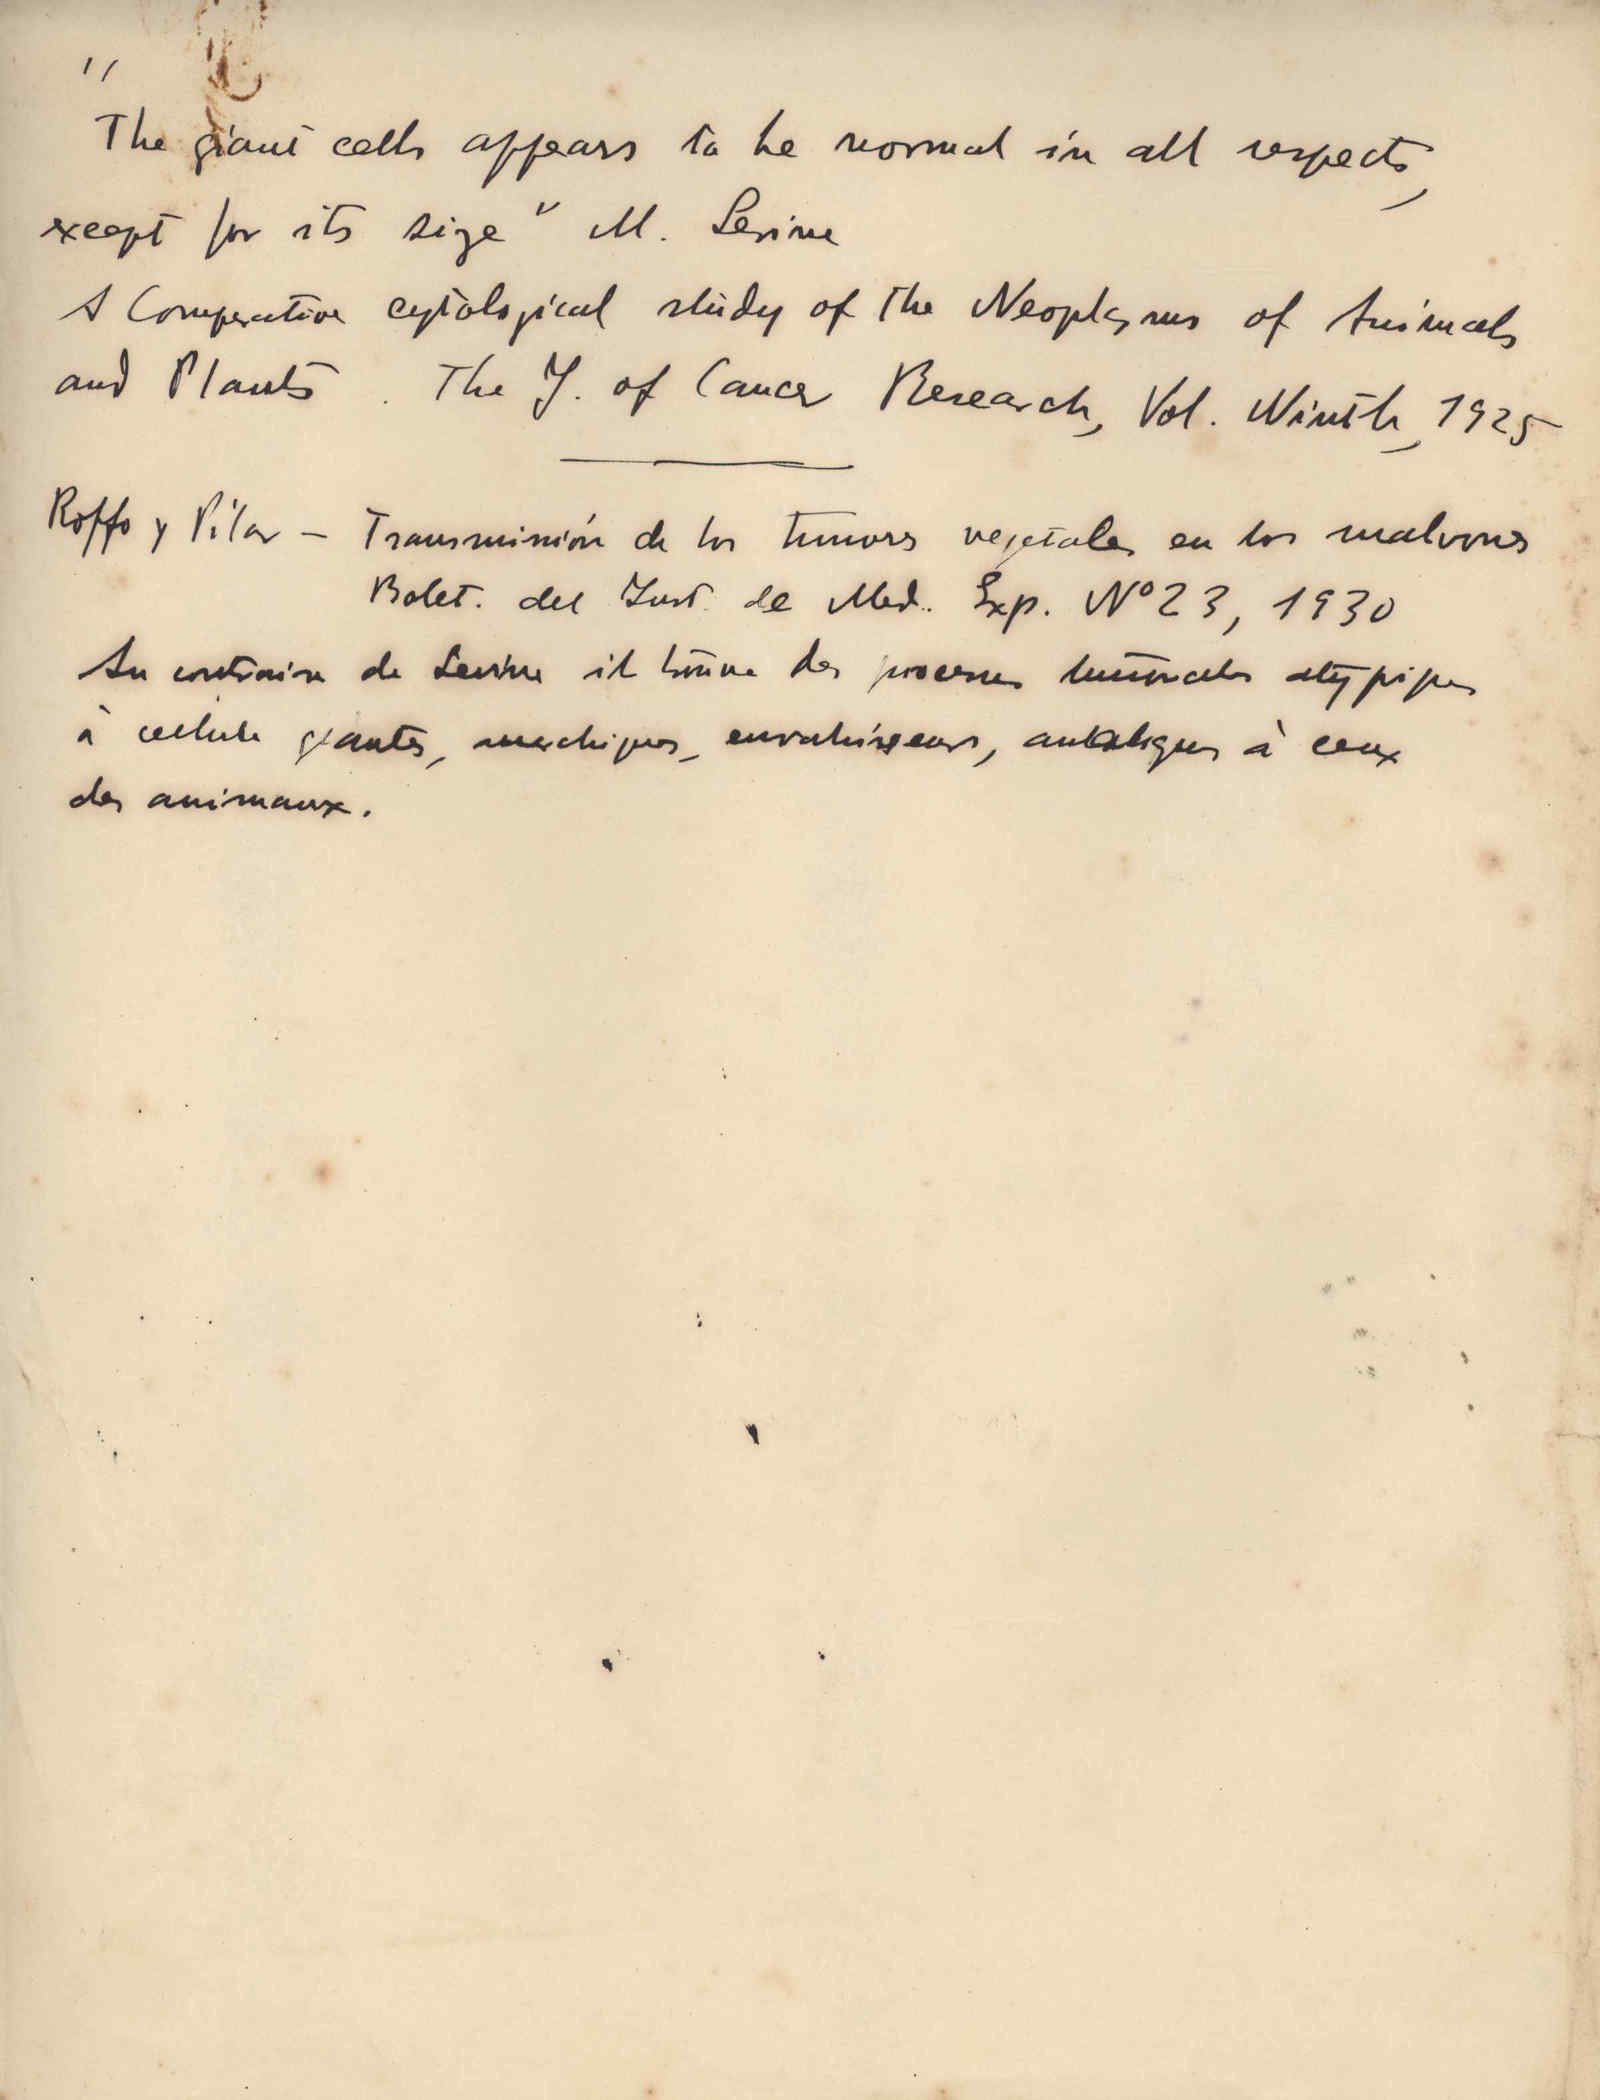 "
The giant cells appears to be normal in all respects,
except for its size" M. Levine
A Comperative cytological study of the Neoplasms of Animals
and Plants. The J. of Cancer Research, Vol. Ninth, 1925
Roffo y Pilar - Transmisión de los tumores vegetales en los malvones
Bolet. del Inst. de Med. Exp. Nº 23, 1930
Au contraire de Levine il trouve des processus tumorales atypiques
à cellule géantes, anarchiques, envahisseurs, analogues à ceux
des animaux.